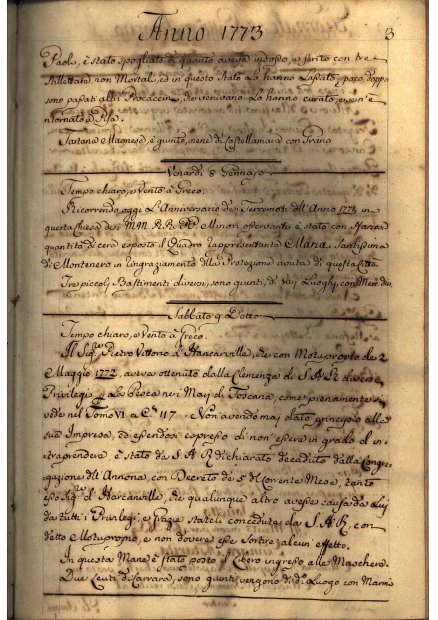 Anno 1773
3
Paolo, è stato spogliato di quanto aveva indosso, e ferito con tre
Stillettate non Mortali, ed in questo Stato lo hanno lasciato, poco doppo
sono passati altri Procaccini, che venivano lo hanno curato, e
ritornato à Pisa.
Tartana Magnese, è giunto, viene di Castellamara con Grano
Venardi 8 Gennajo
Tempo chiaro, e Vento à Greco.
Ricorrendo oggi L'Anniversario dei Terremoti dell'Anno in
questa Chiesa dei M.M. R.R. P.P. Minori osservanti è stato con
quantità di cera esposto il Quadro rappresentante Maria Santissima
di Montenero in ringraziamento della Protezione avuta di questa Città
Tre piccoli Bastimenti diversi, sono giunti, di varj Luoghi, con Mercanzie
Sabbato 9 Detto
Tempo chiaro, e Vento à Greco.
Il Sig.re Pietro Vittorio d'Hancarville, che con Motuproprio de 2
Maggio 1772, aveva ottenuto dalla Clemenza di S.A.R. diversi
Privilegi la Pesca nei Marj di Toscana, come pienamente si
vede nel Tomo VI a C. 117. Non avendo maj dato principio alla
sua Impresa, ed essendosi espresso di non essere in grado d'in=
traprendere, è stato da S.A.R. dichiarato decaduto dalla Congre=
gazione dell'Annona, con Decreto de 5 del Corrente Mese, tanto
esso Sig.re d'Harcanville, che qualunque altro avesse causa da Lui
da tutti i Privilegi, e Grazie stateli concedute da S.A.R. con
detto Motuproprio, e non dovere esse sortire alcun effetto.
In questa Mane è stato posto il Libero ingresso alle Maschere.
Due Leuti di Carrara, sono giunti, vengono di d.o Luogo con Marmi